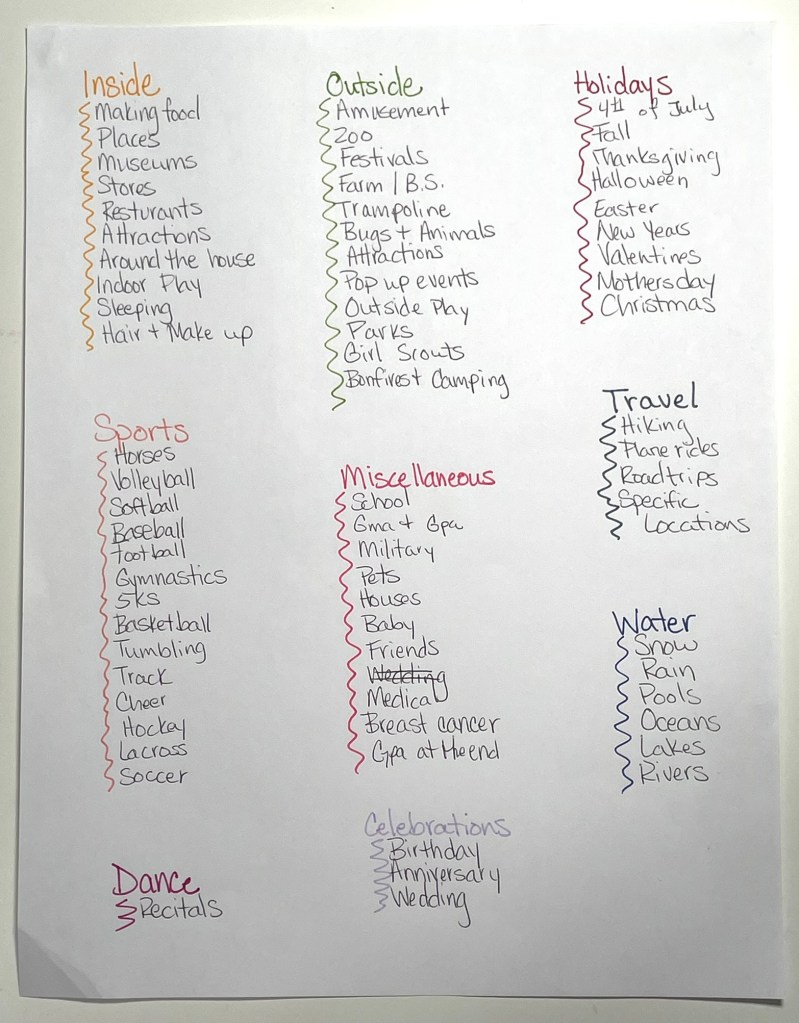 Inside
Making food
Places
Museums
Stores
Resturants
Attractions
Around the house
Indoor Play
Sleeping
Hair + Make up
Sports
Horses
Volleyball
Softball
Baseball
football
Gymnastics
5ks
Basketball
Tumbling
Track
Cheer
Hockey
Lacross
Soccer
Dance
Recitals
Outside
Amusement
Zoo
Festivals
Farm / B.S.
Trampoline
Bugs + Animals
Attractions
Pop up events
Outside Play
Parks
Girl Scouts
Bonfires + Camping
Miscellaneous
School
Gma + Gpa
Military
Pets
Houses
Baby
Friends
Wedding
Medical
Breast cancer
Gpa at the end
Celebrations
Birthday
Anniversary
Wedding
Holidays
4th of July
Fall
Thanksgiving
Halloween
Easter
New Years
Valentines
Mothers day
Christmas
Travel
Hiking
Plane rides
Road trips
Specific
Locations
Water
Snow
Rain
Pools
Oceans
Lakes
Rivers